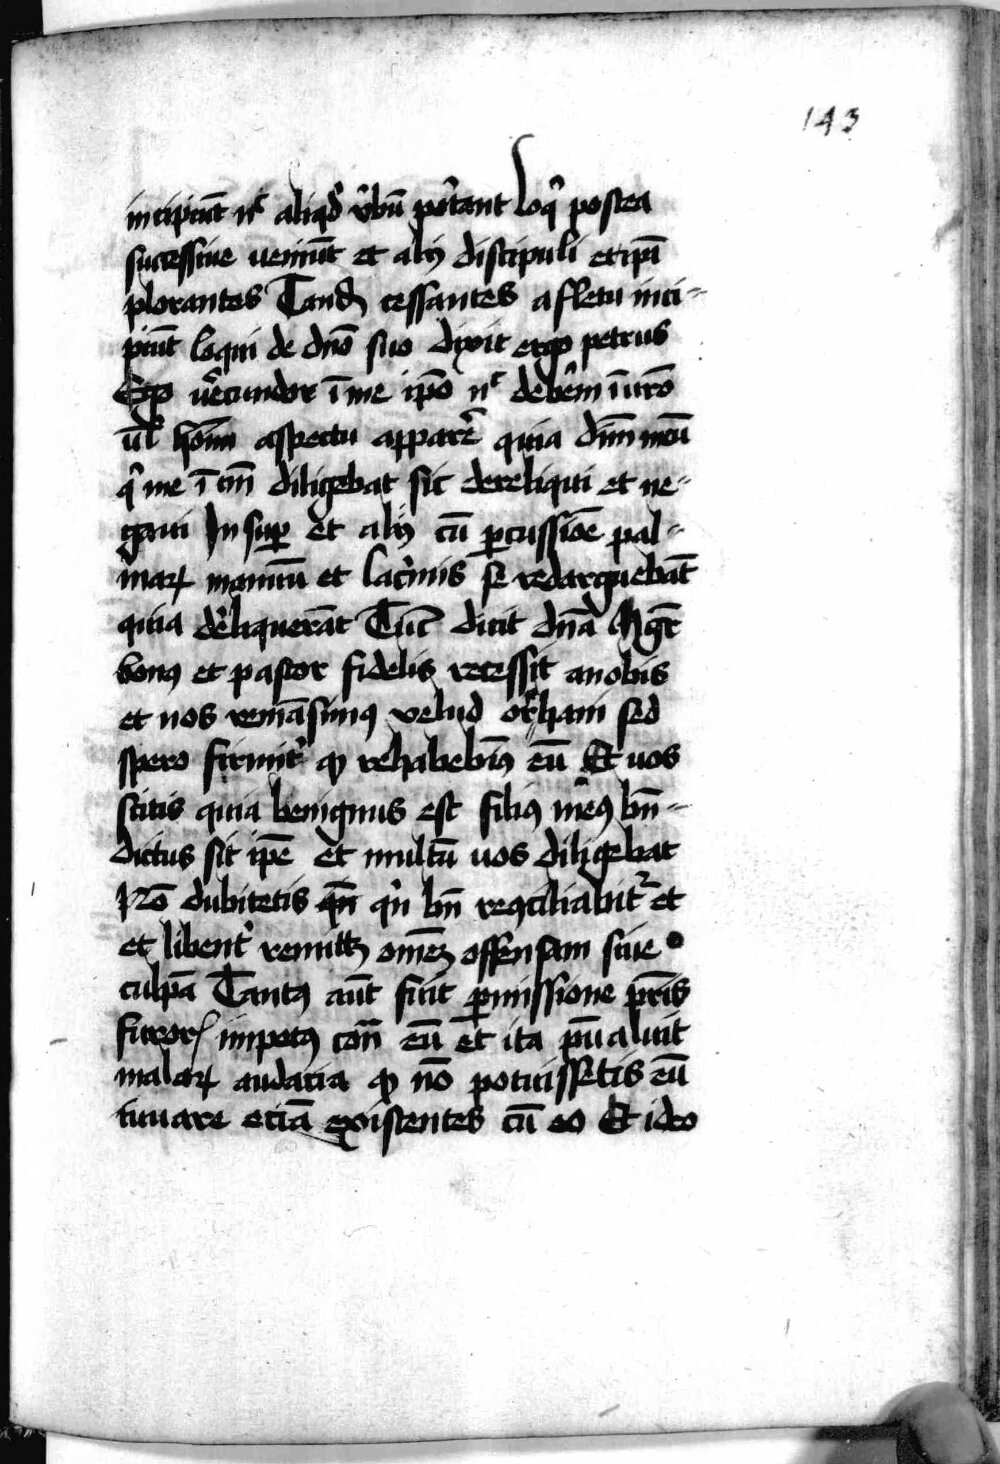 143
incipiūt nc̄ aliqd̄ v̄bū pot̄ant loq̄ postea
successiue ueniūt et alij discipuli et ip̄i
plorantes Tand̄ cessantes a fletu inci-
piūt loqui de dn̄o suo dixit ergo petrus
Ego v̄ecundor ī me ip̄o nc̄ deberem ī ur̄o
ul̄ hoīm aspectu apparē quia dn̄m meū
q̄ me ī tm̄ diligebat sic dereliqui et ne-
gaui Insuꝑ et alij cū ꝑcussiōe pal-
maꝝ manuū et lac̄mis se redarguebāt
quia d̄eliquerāt Tūc dicit dn̄a Mg̃r
bonꝰ et pastor fidelis recessit a nobis
et nos remāsimꝰ velud orphani sed
spero firmit̄ ꝙ rehabebimꝰ eū Et uos
scitis quia benignus est filiꝰ meꝰ bn̄-
dictus sit ip̄e et multū uos diligebat
Nō dubitetis qn̄ bn̄ reꝯciliabit̄ et
et libent̄ remittꝫ om̄eꝫ offensam siue
culpā Tantꝰ aūt fuit ꝑmissione pr̄is
furorꝭ impetꝰ con̄ eū et ita p̄ualuit
malaꝝ audacia ꝙ nō potuissetis eū
iuuare eciā existentes cū eo Et ideo